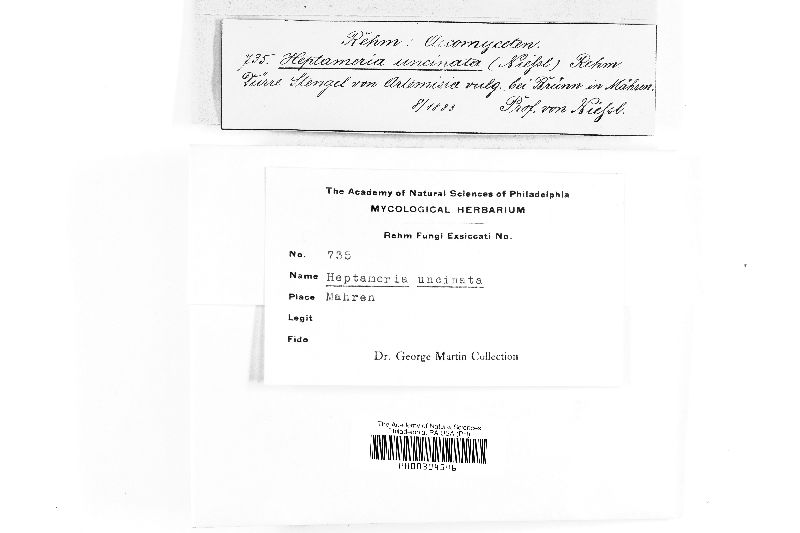 Rehm: Ascomyceten.
735. Heptameria uncinata (Niessl.) Rehm
Dürre Stengel von Artemisia vulg. bei Brünn in Mähren.
8/1883 Prof. von Niessl.
The Academy of Natural Sciences of Philadelphia
MYCOLOGICAL HERBARIUM
Rehm Fungi Exsiccati No.
No. 735
Name Heptameria uncinata
Place Mahren
Legit
Fide
Dr. George Martin Collection
The Academy of Natural Sciences
Philadelphia, PA USA (PH)